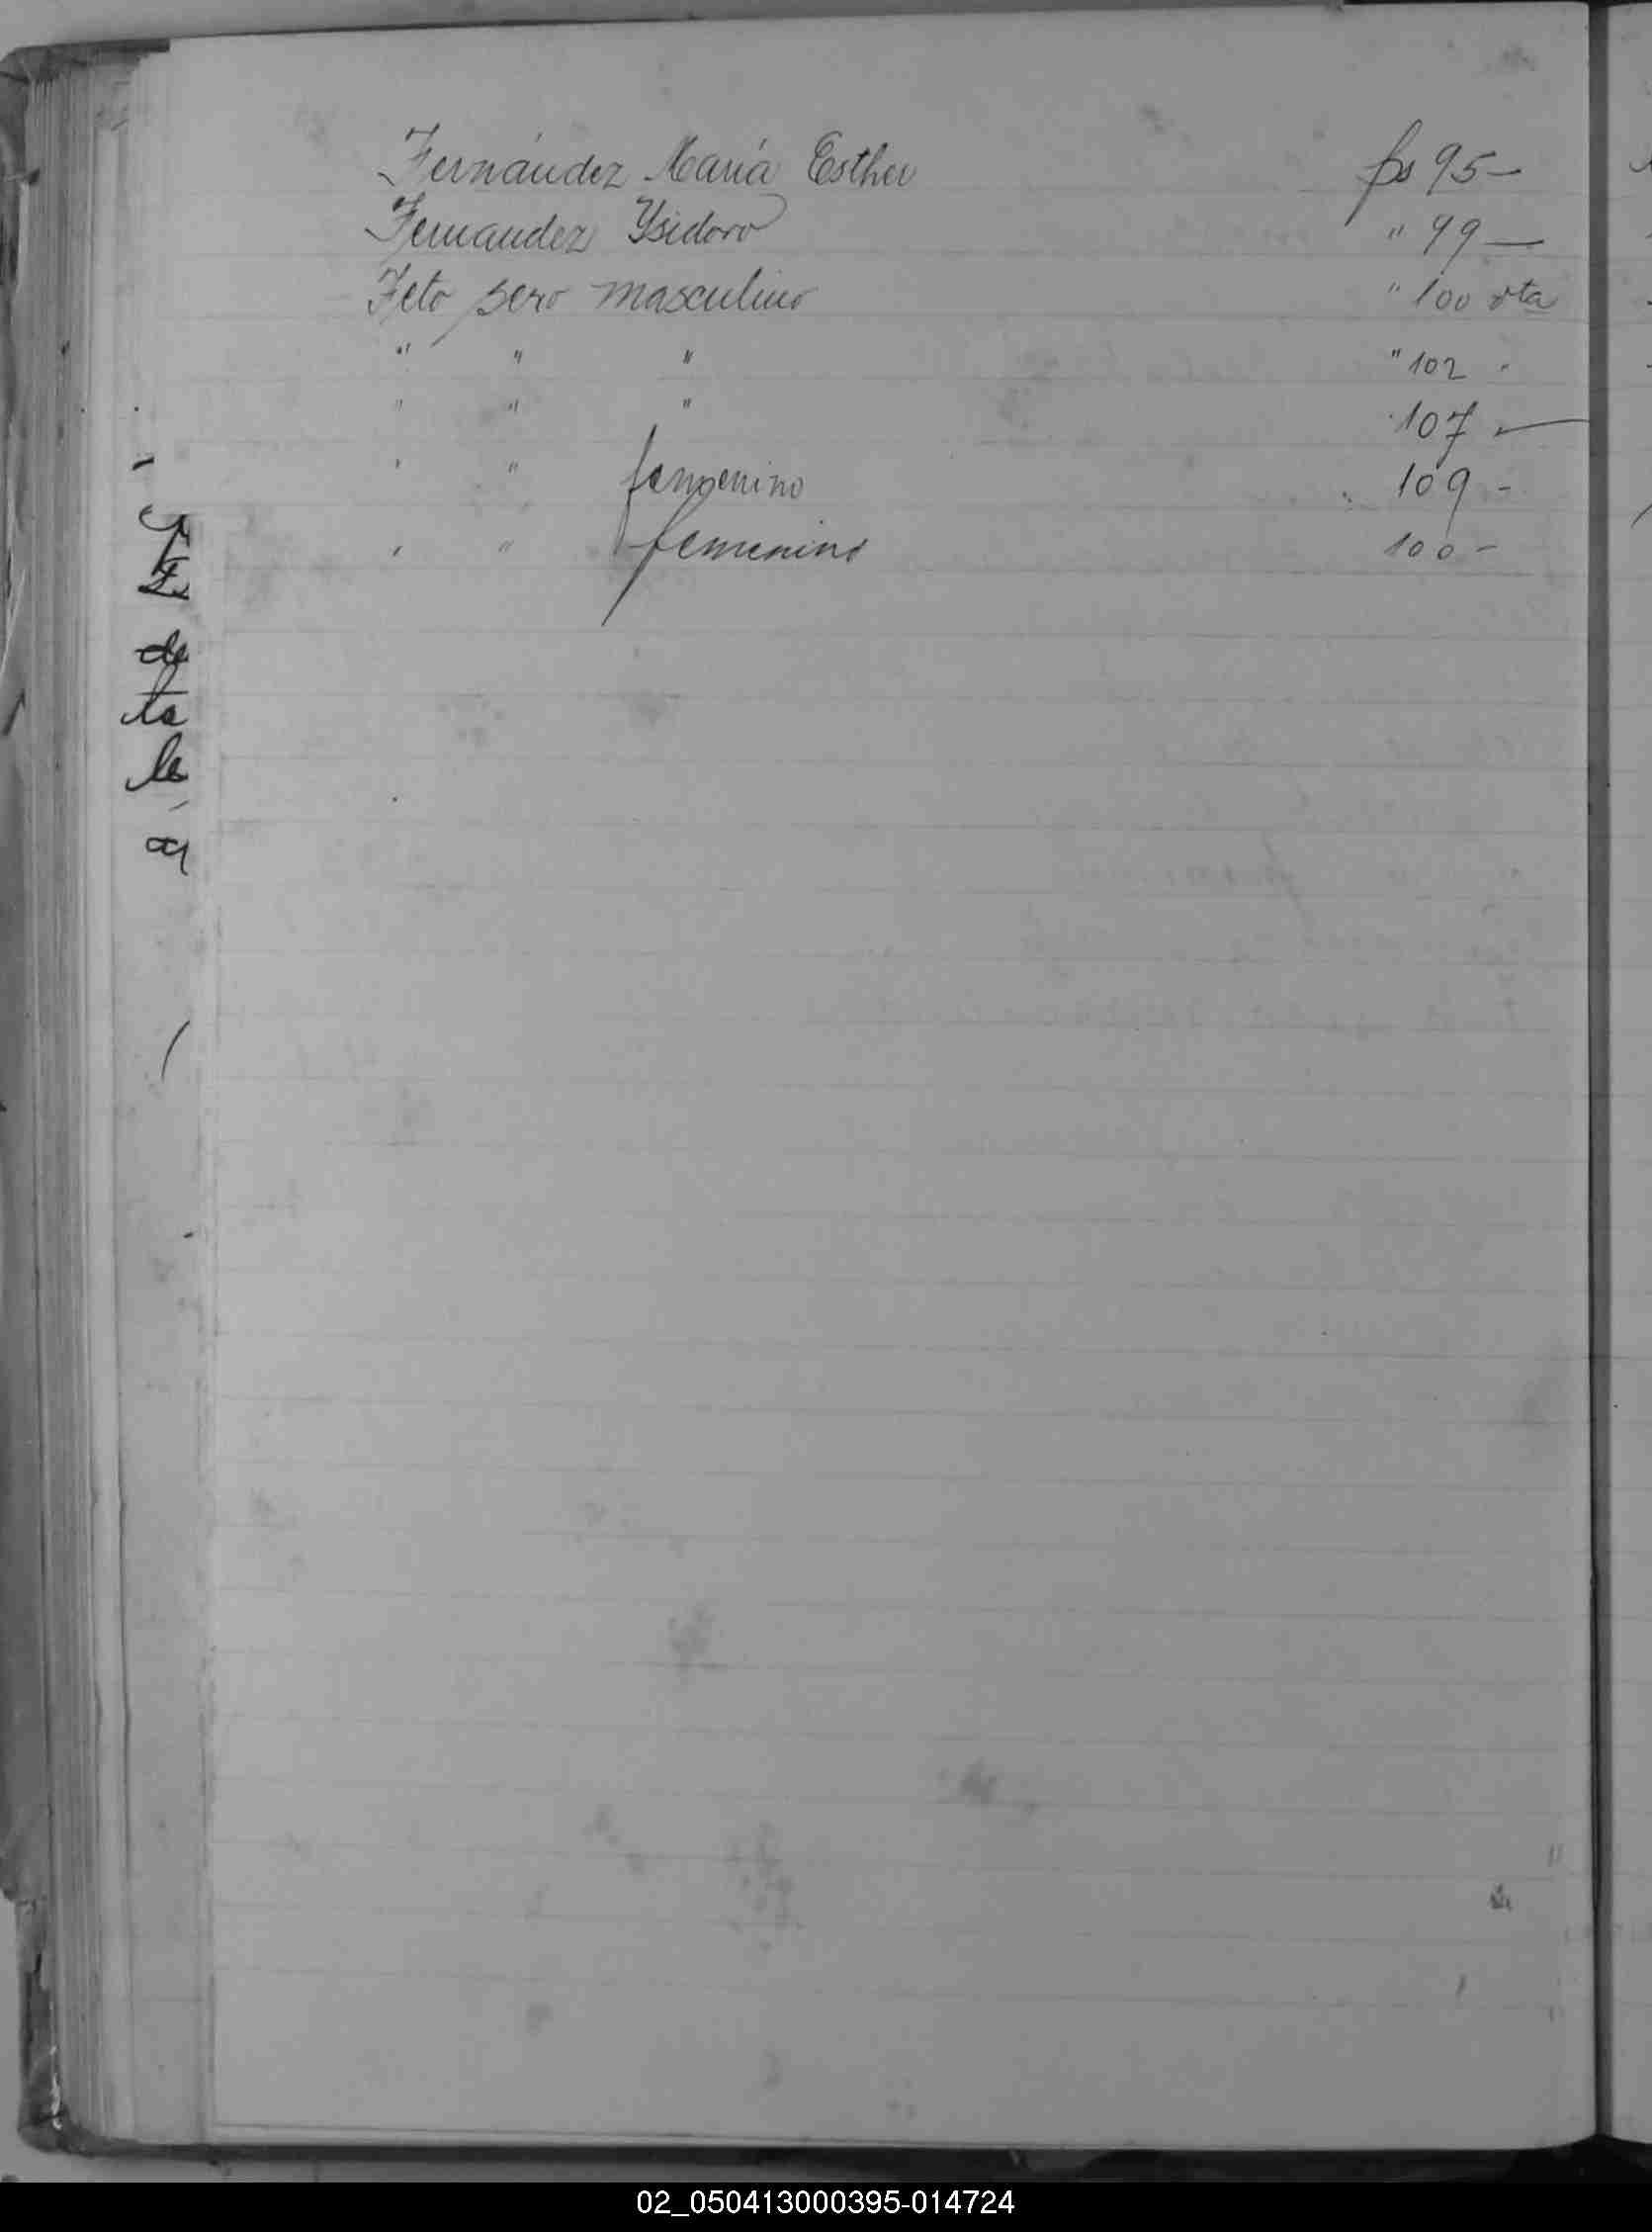 Fernández María Esther fs 95 -
Fernandez Ysidoro " 99 —
Feto sexo masculino " 100 vta
" " " " 102 "
" " " 107 —
" " femenino " 109 -
" " femenino 100 -
de
ta
le
02_050413000395-014724